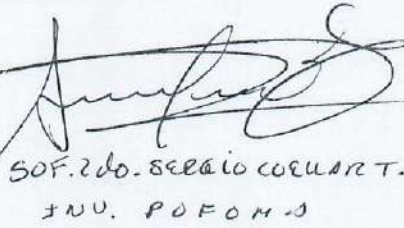 SOF. 2do. SERGIO COELLAR T.
INV. POFOMA